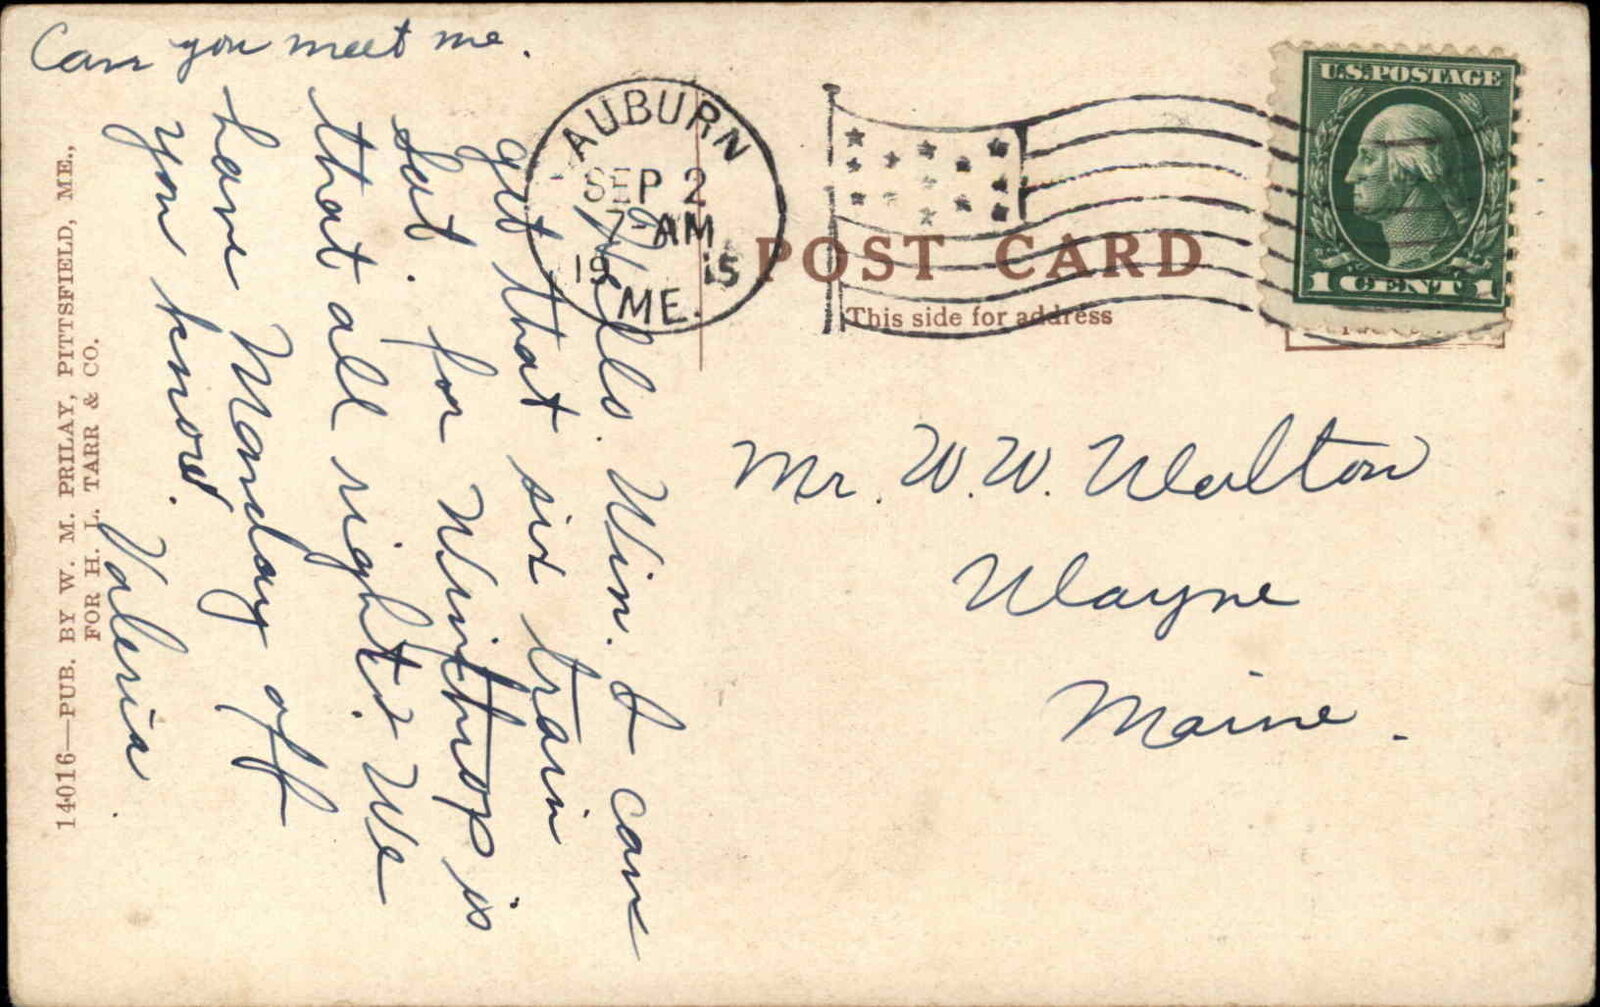 Can you meet me.
Hello Win. I can
get that six train
Sat. for Winthrop is
that all right? We
have Monday off
you know.
Valeria
AUBURN
SEP 2
7-AM
1915
ME.
U.S. POSTAGE
1 CENT 1
POST CARD
This side for address
Mr. W. W. Walton
Wayne
Maine.
14016—PUB. BY W. M. PRILAY, PITTSFIELD, ME.,
FOR H. L. TARR & CO.